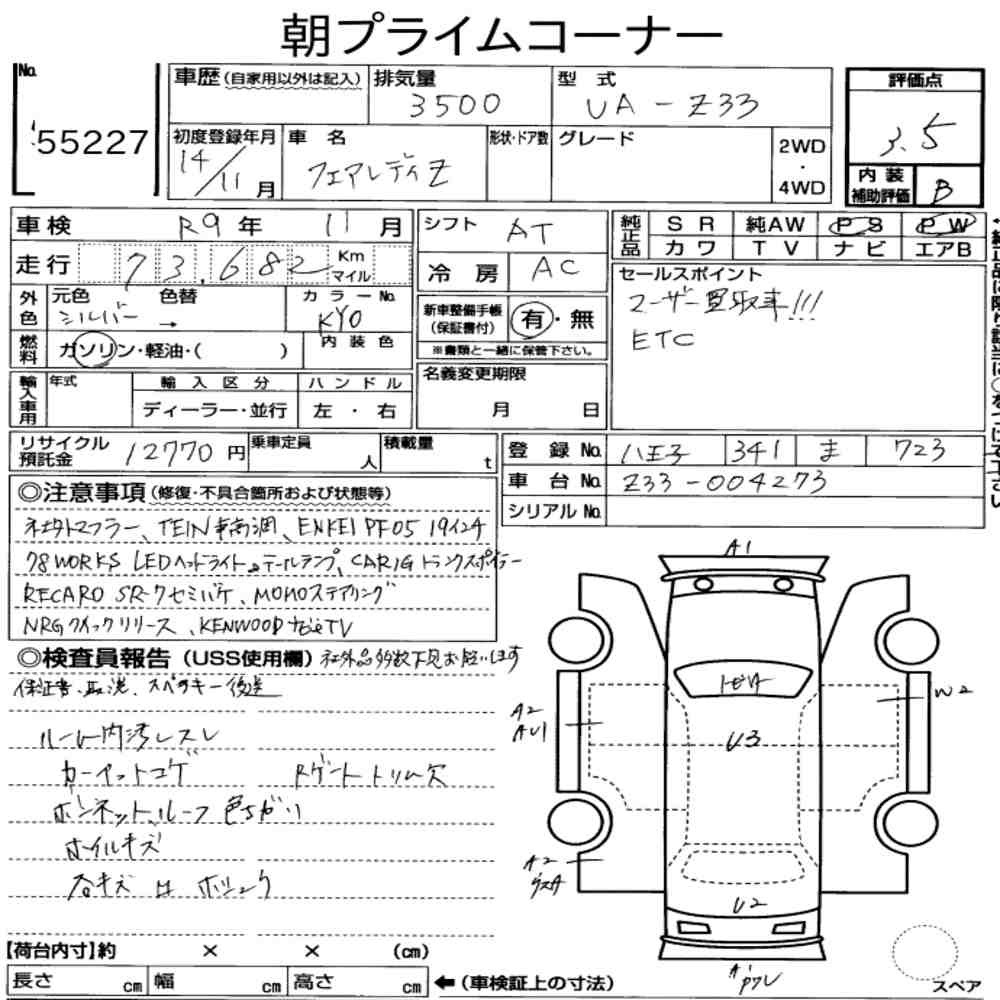 朝プライムコーナー
No. 55227
車歴(自家用以外は記入) 排気量 3500 型式 UA-Z33
評価点 3.5
初度登録年月 14/11月 車名 フェアレディZ 形状・ドア数 グレード 2WD・4WD
内装補助評価 B
車検 R9年 11月 シフト AT
純正品 SR 純AW PS PW
カワ TV ナビ エアB
走行 73,682 Km マイル 冷房 AC
セールスポイント
ユーザー買取車!!!
ETC
外色 元色 シルバー 色替 → カラーNo. KY0
新車整備手帳(保証書付) 有・無
※書類と一緒に保管下さい。
燃料 ガソリン・軽油・( ) 内装色
輸入車用 年式 輸入区分 ハンドル
ディーラー・並行 左・右
名義変更期限 月 日
リサイクル預託金 12770円 乗車定員 人 積載量 t
登録No. 八王子 341 ま 723
車台No. Z33-004273
シリアルNo.
◎注意事項(修復・不具合箇所および状態等)
社外マフラー、TEIN車高調、ENKEI PF05 19インチ
78WORKS LEDヘッドライト&テールランプ、CARIG トランクスポイラー
RECARO SR-7セミバケ、MOMOステアリング
NRGクイックリリース、KENWOODナビ&TV
◎検査員報告(USS使用欄) 社外品多数下見お願いします
保証書、取説、スペアキー後送
ルーム内汚レスレ
カーペットコゲ Rゲートトリム欠
ボンネット、ルーフ色ちがい
ホイルキズ
【荷台内寸】約 × × (cm)
長さ cm 幅 cm 高さ cm ←(車検証上の寸法)
A1
W2
A2
AU1
U3
A2
U2
A1
スペア